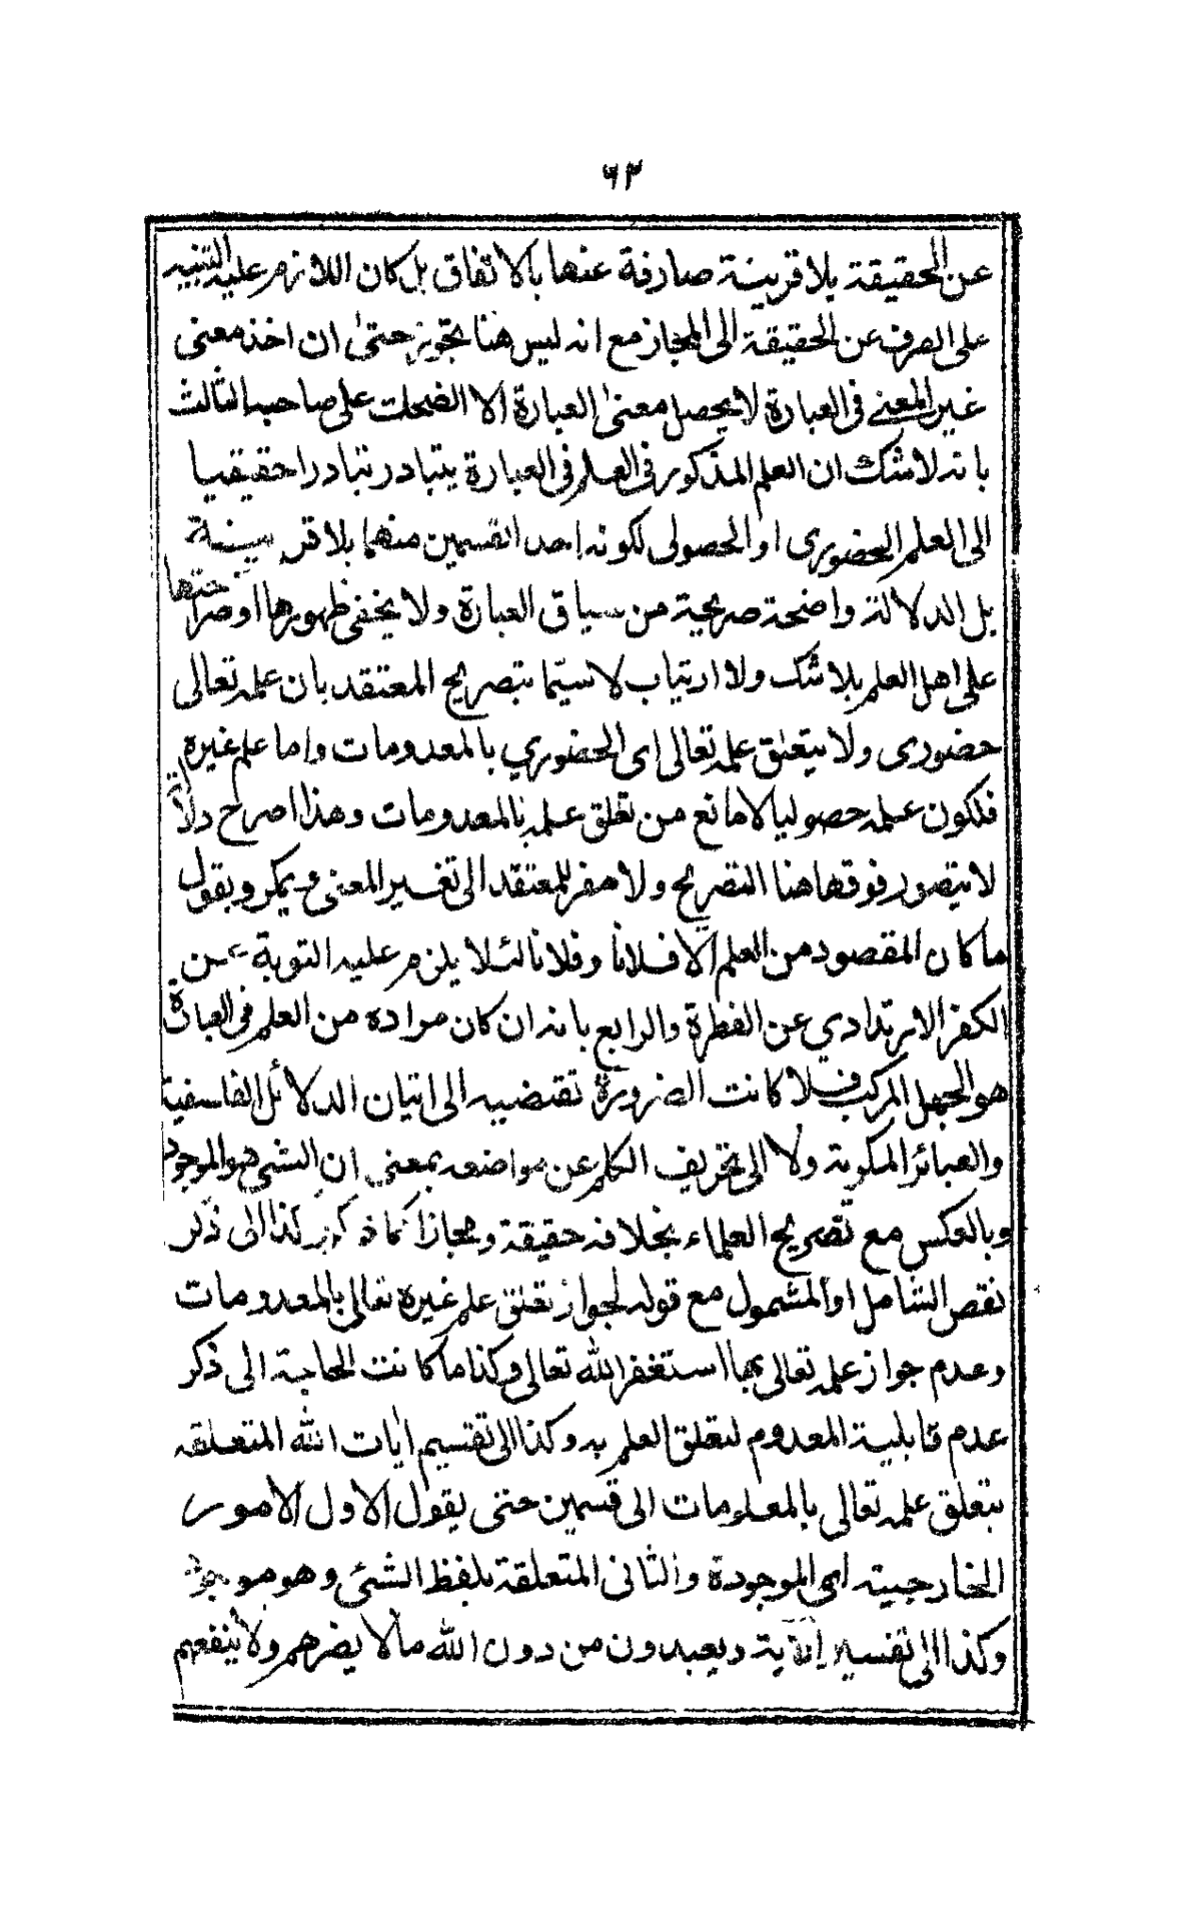 ٦٢
عن الحقيقة بلا قرينة صارفة عنها بالاتفاق بل كان اللازم عليه التنبيه
على الصرف عن الحقيقة الى المجاز مع انه ليس هنا تجويز حتى ان اخذ معنى
غير المعنے فى العبارة لا يحصل معنى العبارة الا الضحك على صاحبها الثالث
بانه لا شك ان العلم المذكور فى العلم فى العبارة يتبادر تبادرا حقيقيا
الى العلم الحضورى او الحصولى لكونه احد القسمين منهما بلا قرينة
بل الدلالة واضحة صريحية من سياق العبارة ولا يخفى ظهورها او صراحتها
على اهل العلم بلا شك ولا ارتياب لا سيّما بتصريح المعتقد بان علمه تعالى
حضورى ولا يتعلق علمه تعالى اى الحضوري بالمعدومات واما علم غيره
فلكون علمه حصوليا لا مانع من تعلق علمه بالمعدومات وهذا اصرح دلالة
لا يتصور فوقها هنا التصريح ولا مفر للمعتقد الى تغيير المعنى ويمكر ويقول
ما كان المقصود من العلم الا فلانا وفلانا لئلا يلزم عليه التوبة عن
الكفر الارتدادي عن الفطرة والرابع بانه ان كان مراده من العلم فى العبارة
هو الجهل المركب فلا كانت الضرورة تقتضيه الى اتيان الدلائل الفلسفية
والعبائر المكوية ولا الى تحريف الكلم عن مواضعه بمعنى ان الشى هو الموجود
وبالعكس مع تصريح العلماء بخلافه حقيقة ومجازا كما ذكر كذا الى ذكر
نقص الشامل او المشمول مع قوله لجواز تعلق علم غيره تعالى بالمعدومات
وعدم جواز علمه تعالى بها استغفر الله تعالى وكذا ما كانت الحاجة الى ذكر
عدم قابلية المعدوم لتعلق العلم به وكذا الى تقسيم ايات الله المتعلقه
بتعلق علمه تعالى بالمعلومات الى قسمين حتى يقول الاول الامور
الخارجيته اى الموجودة والثانى المتعلقة بلفظ الشئى وهو موجود
وكذا الى تفسير الآية ويعبدون من دون الله مالا يضرهم ولا ينفعهم